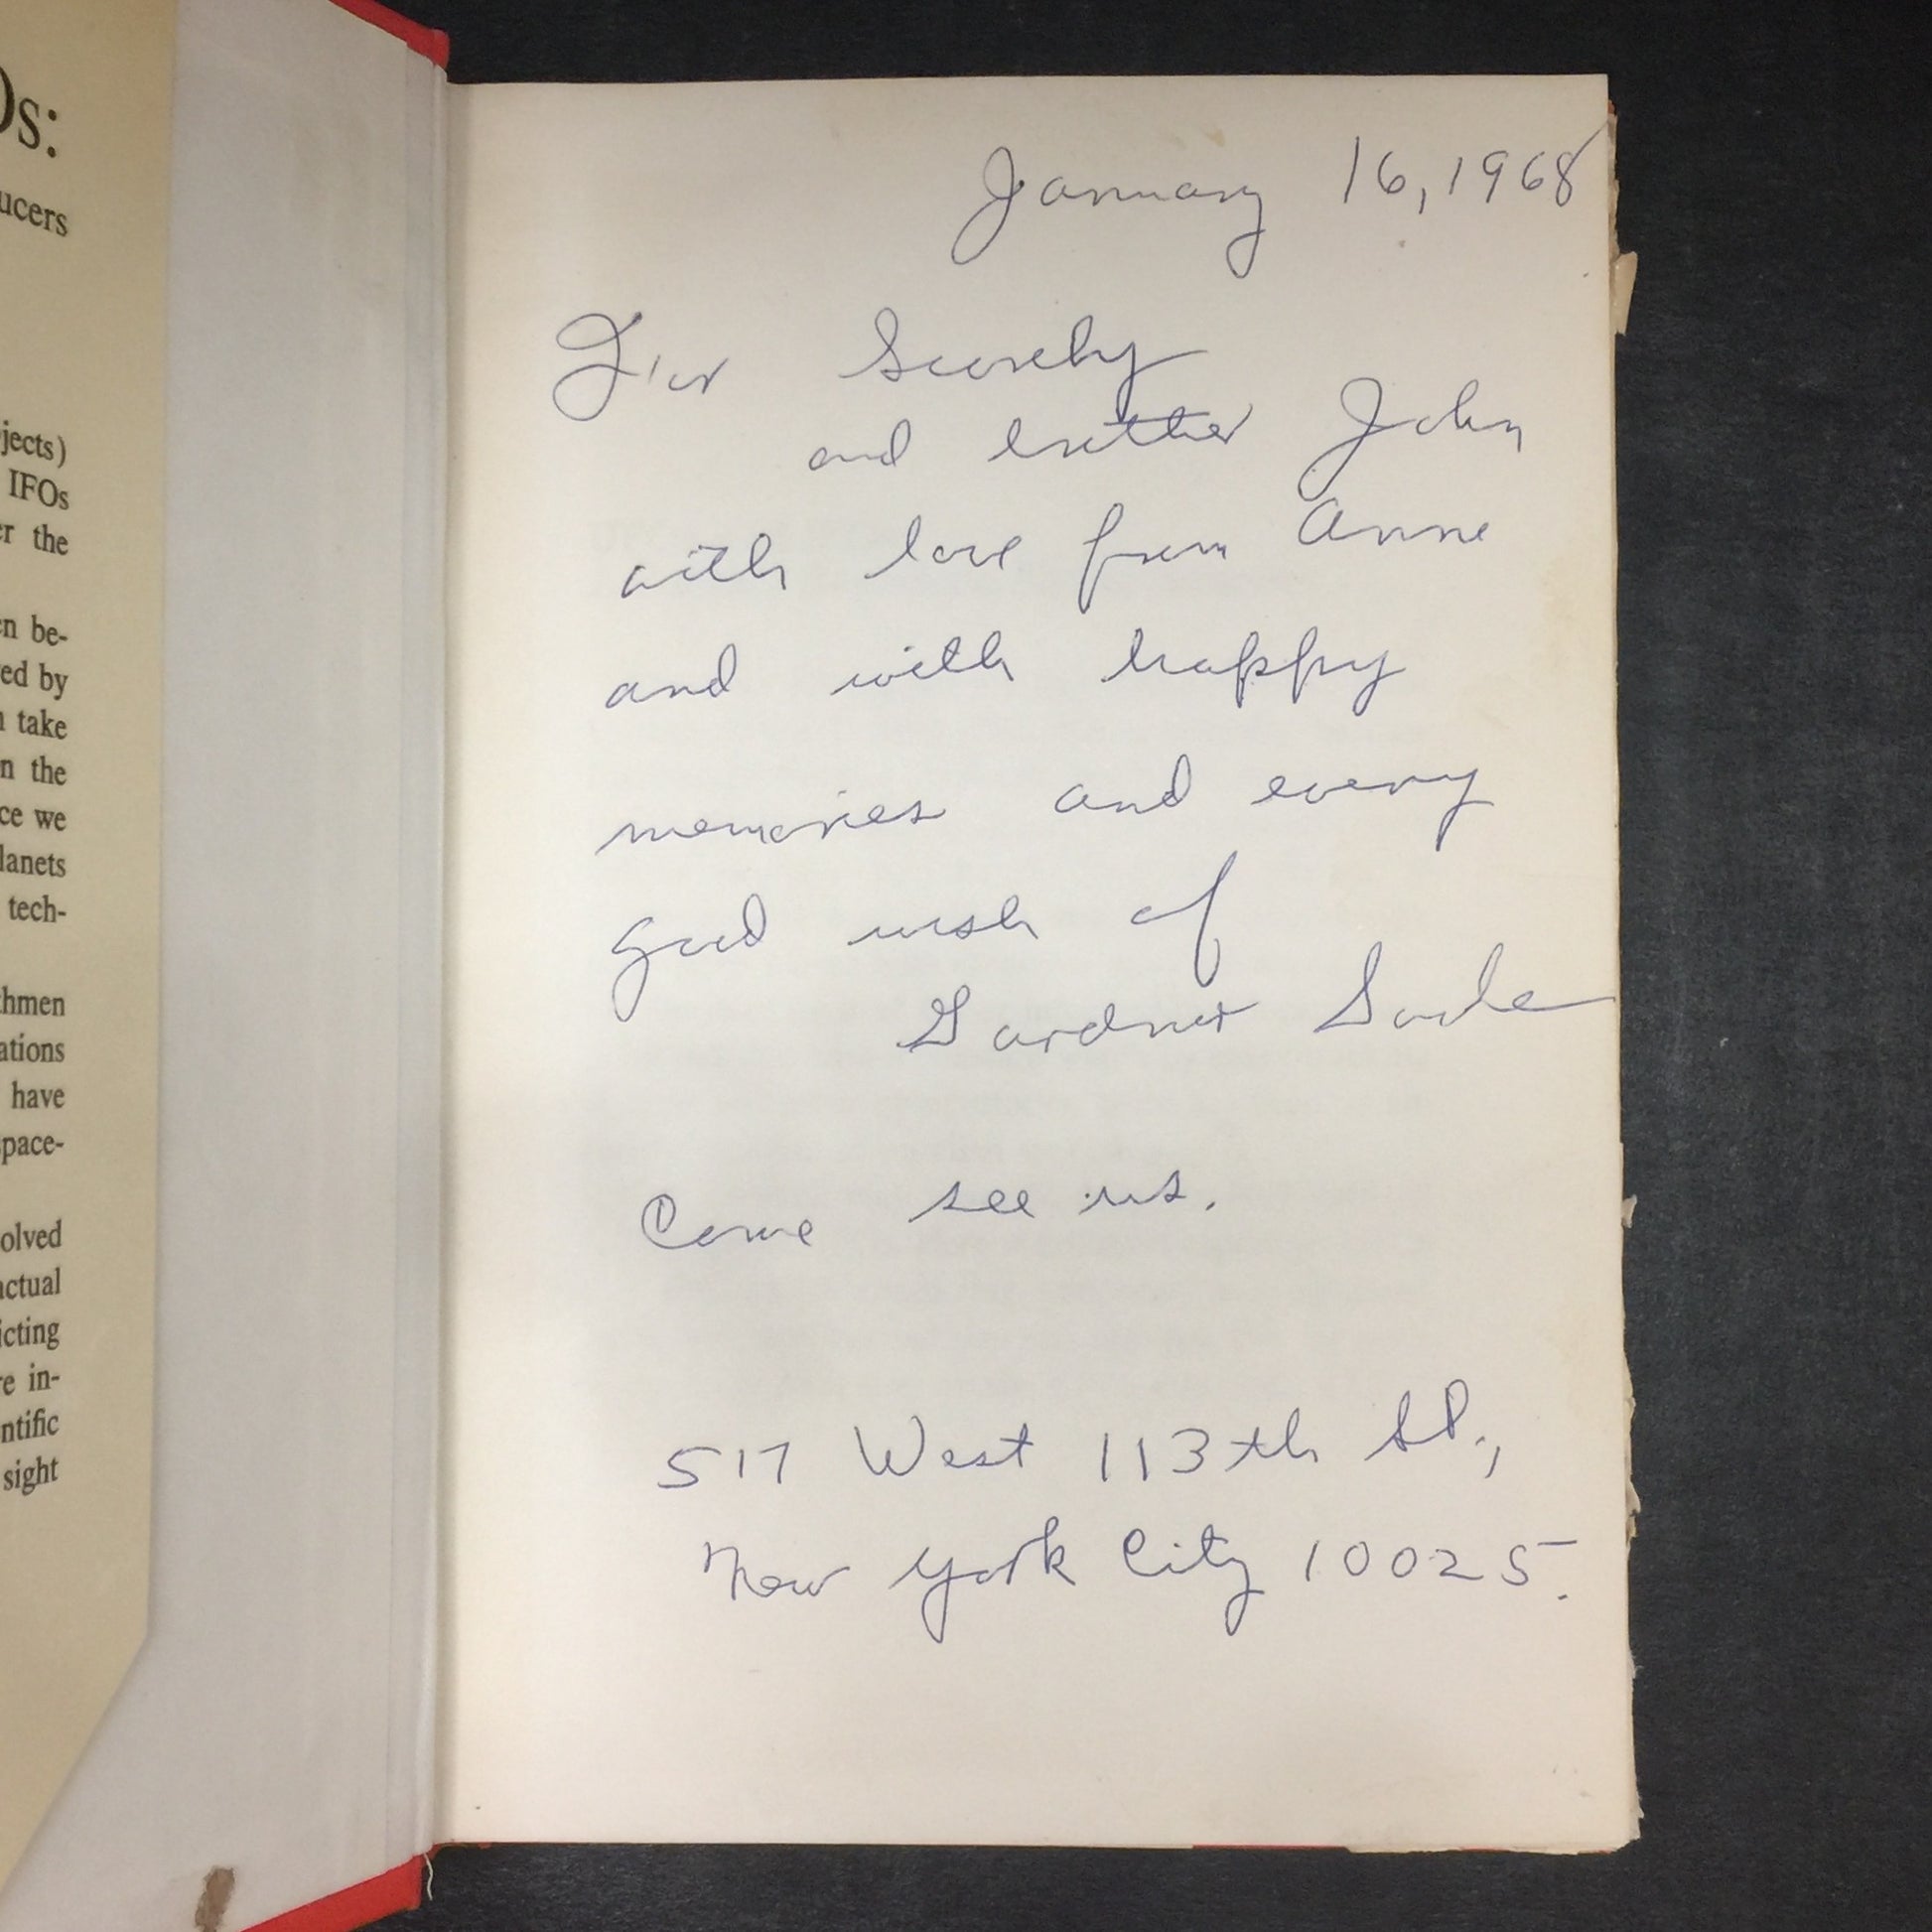 Os:
ucers
jects)
IFOs
er the
en be-
ed by
n take
n the
ce we
lanets
tech-
thmen
ations
have
space-
olved
actual
icting
re in-
ntific
sight
January 16, 1968
For
and brother John
with love from Anne
and with happy
memories and every
good wish of
Gardner Soule
Come see us.
517 West 113th St.,
New York City 10025.